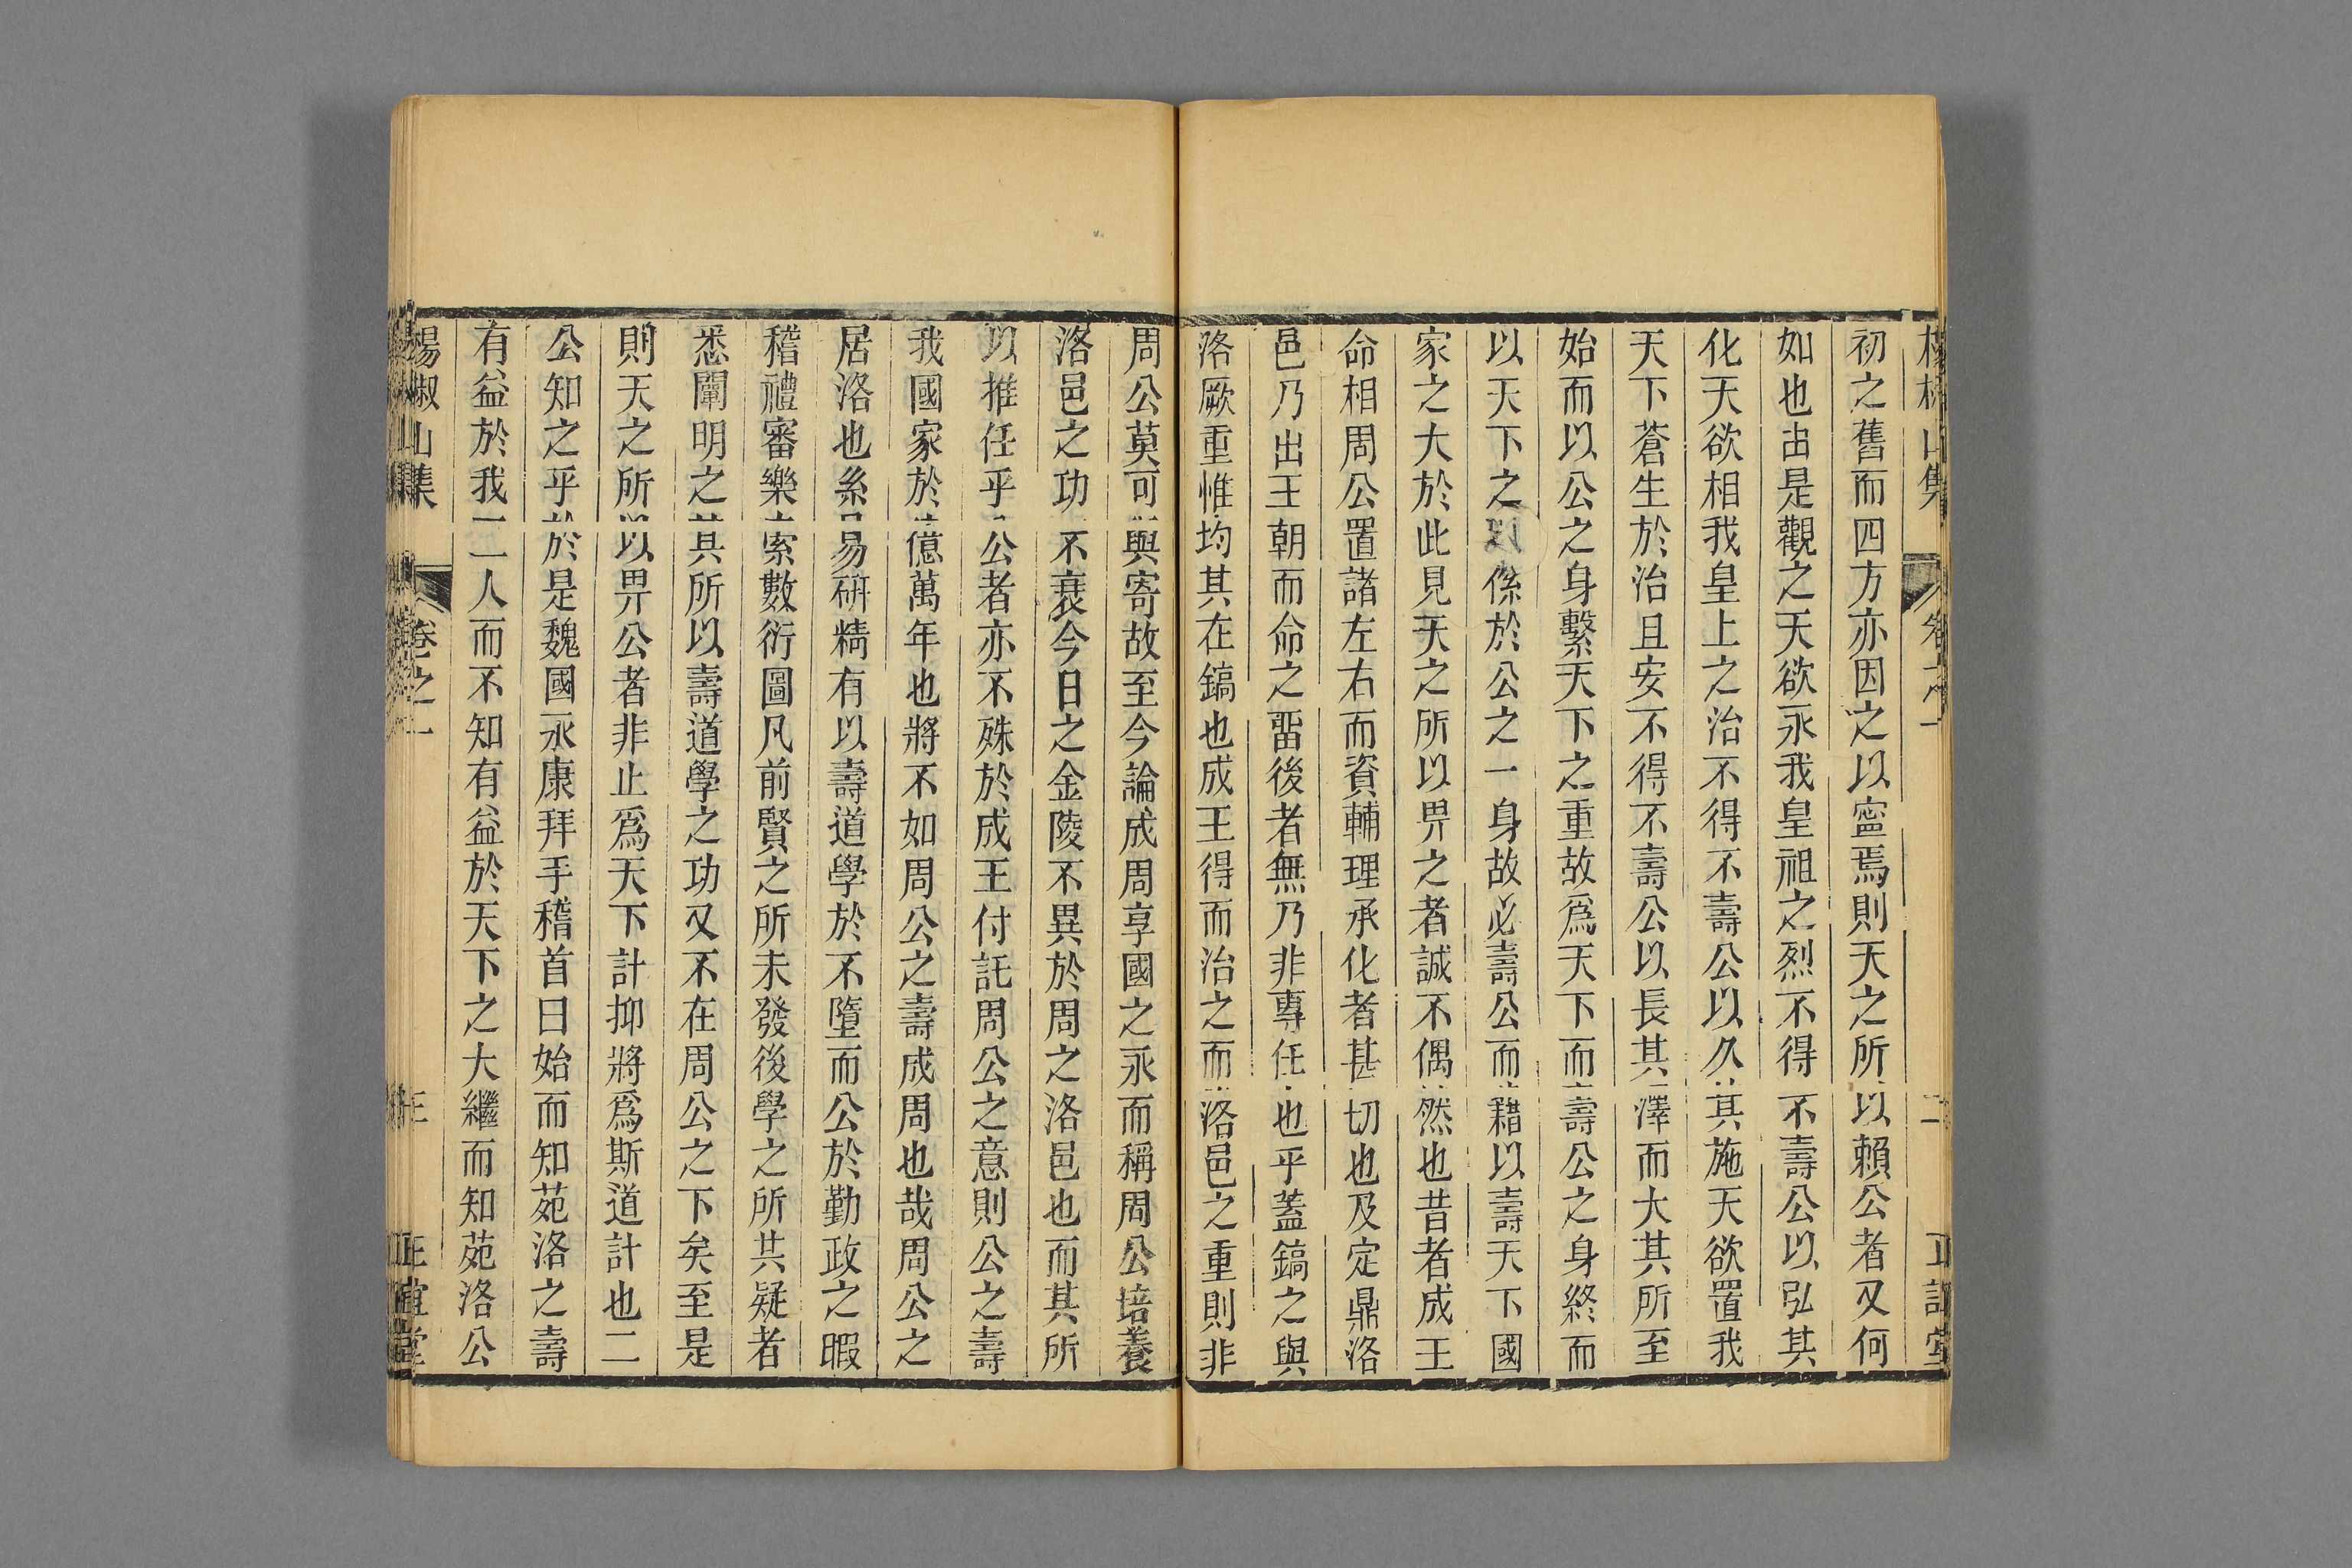 初之舊而四方亦因之以寧焉則天之所以賴公者又何
如也由是觀之天欲永我皇祖之烈不得不壽公以弘其
化天欲相我皇上之治不得不壽公以久其施天欲置我
天下蒼生於治且安不得不壽公以長其澤而大其所至
始而以公之身繫天下之重故爲天下而壽公之身終而
以天下之係於公之一身故必壽公而藉以壽天下國
家之大於此見天之所以畀之者誠不偶然也昔者成王
命相周公置諸左右而資輔理承化者甚切也及定鼎洛
邑乃出王朝而命之畱後者無乃非專任也乎蓋鎬之與
洛厥重惟均其在鎬也成王得而治之而洛邑之重則非
周公莫可與寄故至今論成周享國之永而稱周公培養
洛邑之功不衰今日之金陵不異於周之洛邑也而其所
以推任乎公者亦不殊於成王付託周公之意則公之壽
我國家於億萬年也將不如周公之壽成周也哉周公之
居洛也系易研精有以壽道學於不墮而公於勤政之暇
稽禮審樂索數衍圖凡前賢之所未發後學之所共疑者
悉闡明之其所以壽道學之功又不在周公之下矣至是
則天之所以畀公者非止爲天下計抑將爲斯道計也二
公知之乎於是魏國永康拜手稽首曰始而知苑洛之壽
有益於我二人而不知有益於天下之大繼而知苑洛公
楊椒山集 卷之一 正誼堂